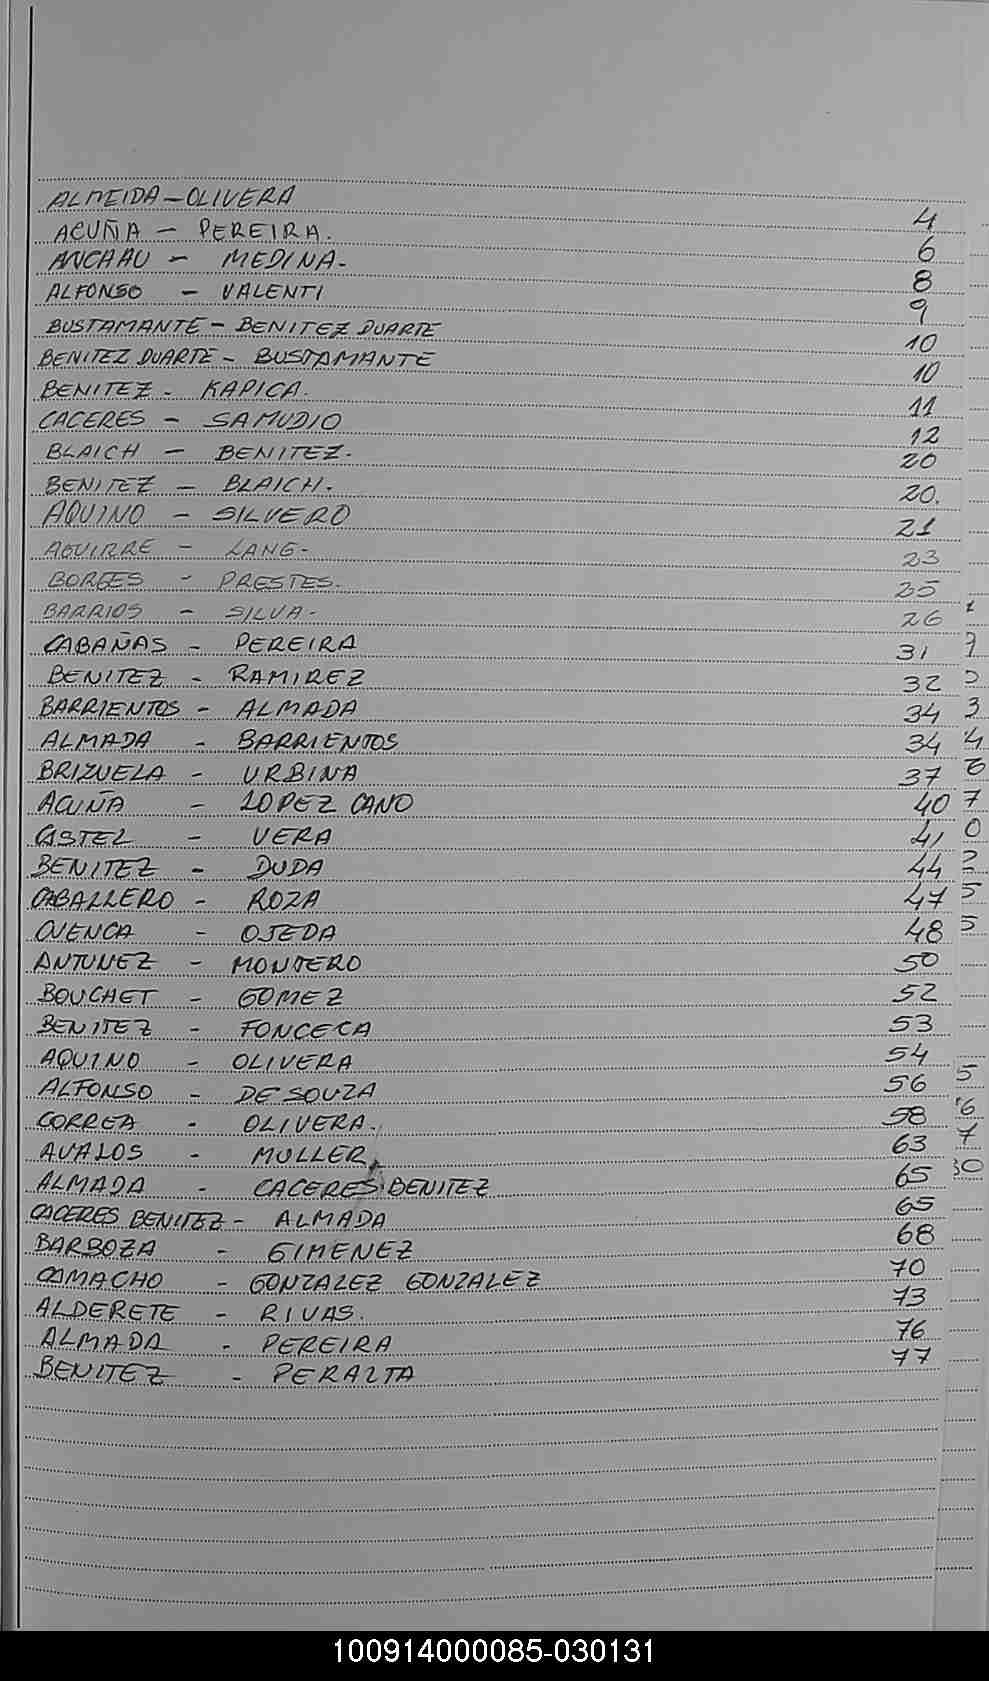 ALMEIDA - OLIVERA 4
ACUÑA - PEREIRA. 6
ANCHAU - MEDINA. 8
ALFONSO - VALENTI 9
BUSTAMANTE - BENITEZ DUARTE 10
BENITEZ DUARTE - BUSTAMANTE 10
BENITEZ - KAPICA. 11
CACERES - SAMUDIO 12
BLAICH - BENITEZ. 20
BENITEZ - BLAICH. 20.
AQUINO - SILVERO 21
AGUIRRE - LANG. 23
BORGES - PRESTES. 25
BARRIOS - SILVA. 26
CABAÑAS - PEREIRA 31
BENITEZ - RAMIREZ 32
BARRIENTOS - ALMADA 34 3
ALMADA - BARRIENTOS 34 4
BRIZUELA - URBINA 37 6
ACUÑA - LOPEZ CANO 40 7
CASTEL - VERA 41 0
BENITEZ - DUDA 44 2
CABALLERO - ROZA 47 5
CUENCA - OJEDA 48 5
ANTUNEZ - MONTERO 50
BOUCHET - GOMEZ 52
BENITEZ - FONCECA 53
AQUINO - OLIVERA 54
ALFONSO - DE SOUZA 56 5
CORREA - OLIVERA. 58 6
AVALOS - MULLER 63 7
ALMADA - CACERES BENITEZ 65 30
CACERES BENITEZ - ALMADA 65
BARBOZA - GIMENEZ 68
CAMACHO - GONZALEZ GONZALEZ 70
ALDERETE - RIVAS. 73
ALMADA - PEREIRA 76
BENITEZ - PERALTA 77
100914000085-030131